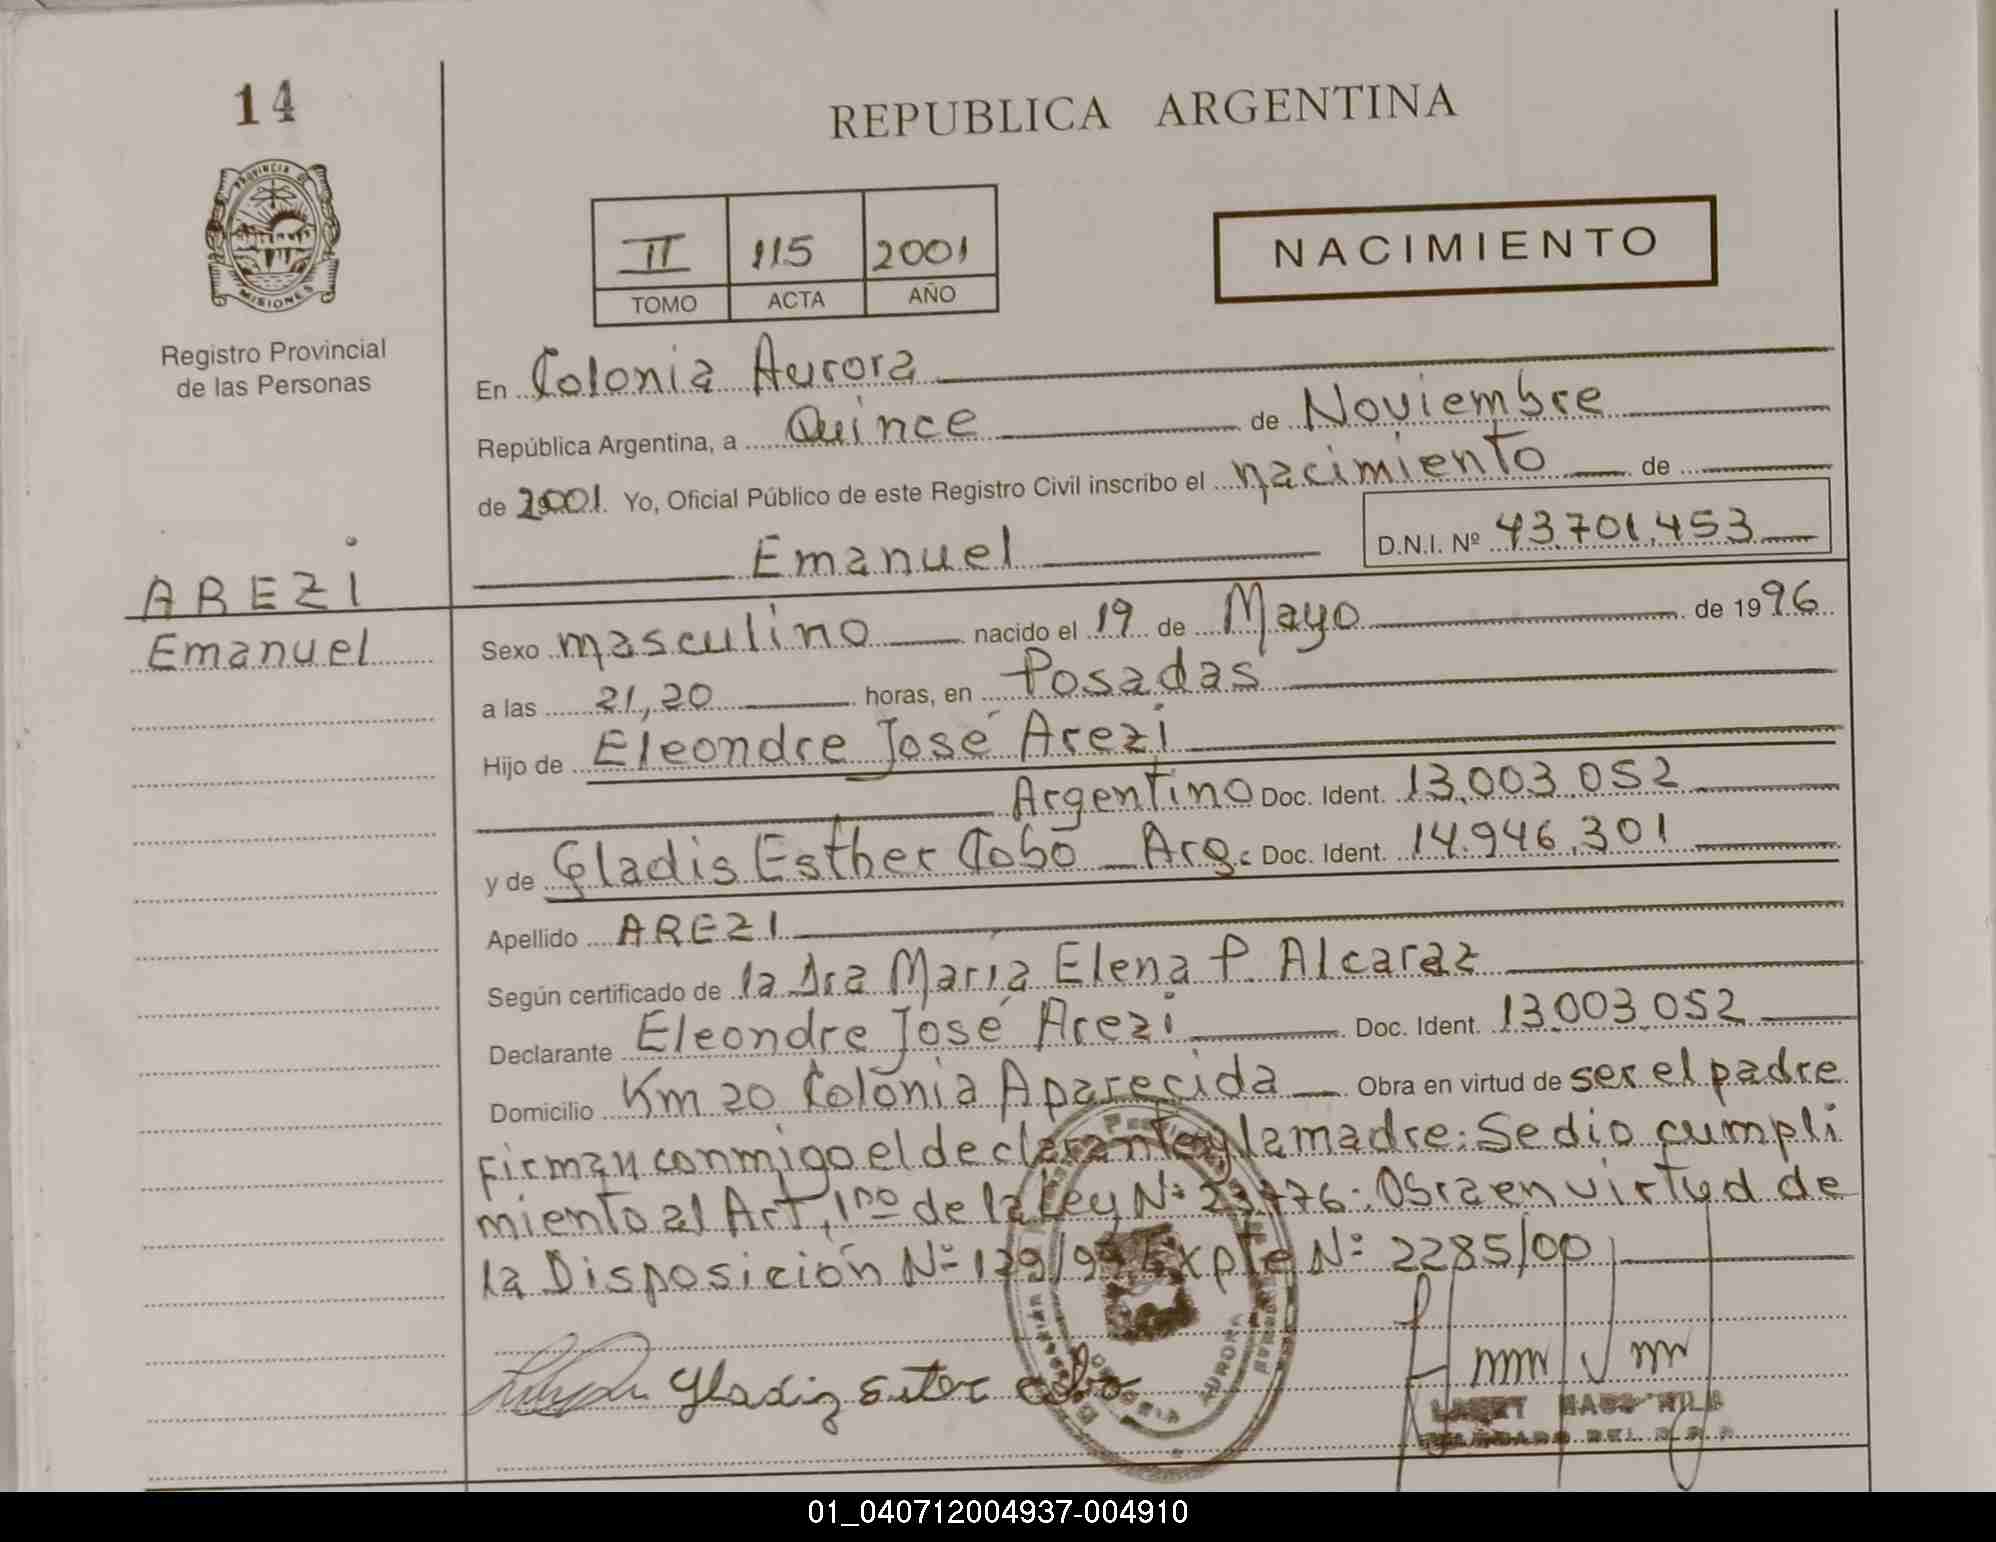 14
REPUBLICA ARGENTINA
PROVINCIA DE
MISIONES
Registro Provincial
de las Personas
II 115 2001
TOMO ACTA AÑO
NACIMIENTO
En Colonia Aurora
República Argentina, a Quince de Noviembre
de 2001. Yo, Oficial Público de este Registro Civil inscribo el nacimiento de
Emanuel D.N.I. Nº 43.701.453
AREZI
Emanuel
Sexo masculino nacido el 19 de Mayo de 1996
a las 21,20 horas, en Posadas
Hijo de Eleondre José Arezi
Argentino Doc. Ident. 13.003.052
y de Gladis Esther Cobo Arg. Doc. Ident. 14.946.301
Apellido AREZI
Según certificado de la Dra María Elena P. Alcaraz
Declarante Eleondre José Arezi Doc. Ident. 13.003.052
Domicilio Km 20 Colonia Aparecida Obra en virtud de ser el padre
Firman conmigo el declarante y la madre: Se dio cumpli
miento al Art, 1ro de la Ley Nº 23.776: Obra en virtud de
la Disposición Nº Expte Nº 2285/00
Gladiz Ester Cobo
AURORA
01_040712004937-004910